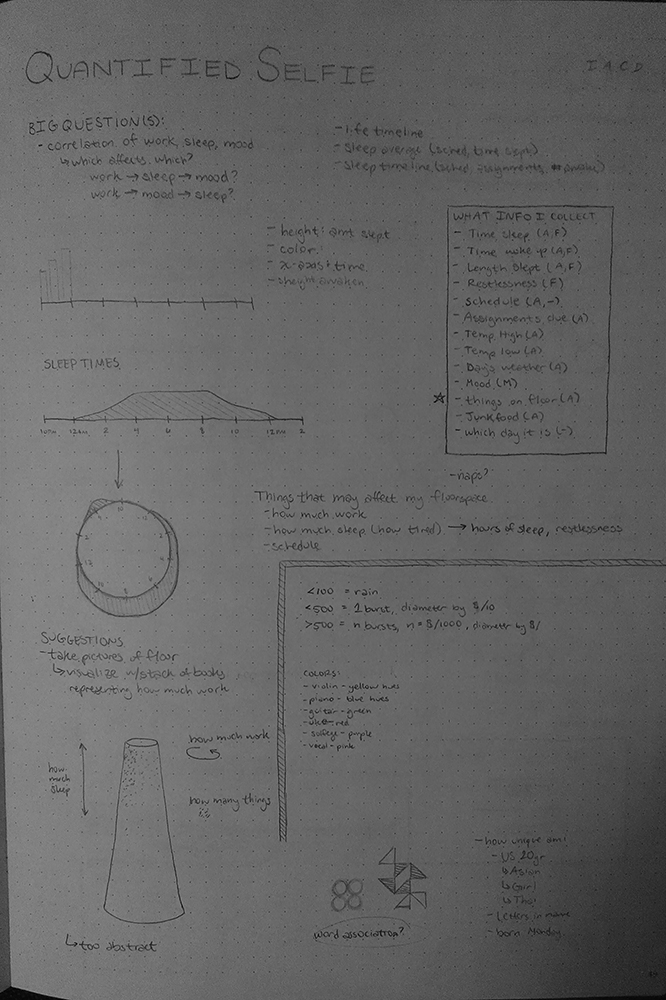 QUANTIFIED SELFIE
IACD
BIG QUESTION(S):
- correlation of work, sleep, mood
↳ which affects which?
work → sleep → mood?
work → mood → sleep?
- life timeline
- sleep average (sched, time slept)
- sleep timeline (sched, assignments,
- height: amt slept
- color:
- x-axis: time
WHAT INFO I COLLECT
- Time sleep (A,F)
- Time woke up (A,F)
- Length slept (A,F)
- Restlessness (F)
- Schedule (A,-)
- Assignments due (A)
- Temp High (A)
- Temp low (A)
- Days weather (A)
- Mood (M)
☆ - things on floor (A)
- Junkfood (A)
- which day it is (-)
- naps?
SLEEP TIMES
10pm 12am 2 4 6 8 10 12pm 2
Things that may affect my floorspace
- how much work
- how much sleep (how tired) → hours of sleep, restlessness
- schedule
SUGGESTIONS
- take pictures of floor
↳ visualize w/stack of books
representing how much work
how much sleep
how much work
how many things
↳ too abstract
<100 = rain
<500 = 1 burst, diameter by $/10
>500 = n bursts, n = $/1000, diameter by $/
COLORS:
- violin - yellow hues
- piano - blue hues
- guitar - green
- uke - red
- solfege - purple
- vocal - pink
word association?
- how unique am i
- US 20yr
↳ Asian
↳ Girl
↳ Thai
- Letters in name
- born Monday